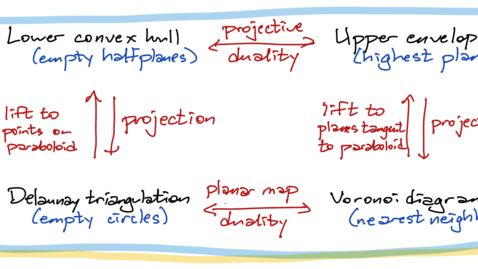 Lower convex hull
(empty halfplanes)
projective
duality
Upper envelop
(highest plan
lift to
points on
paraboloid
projection
lift to
planes tangent
to paraboloid
projec
Delaunay triangulation
(empty circles)
planar map
duality
Voronoi diagram
(nearest neighb